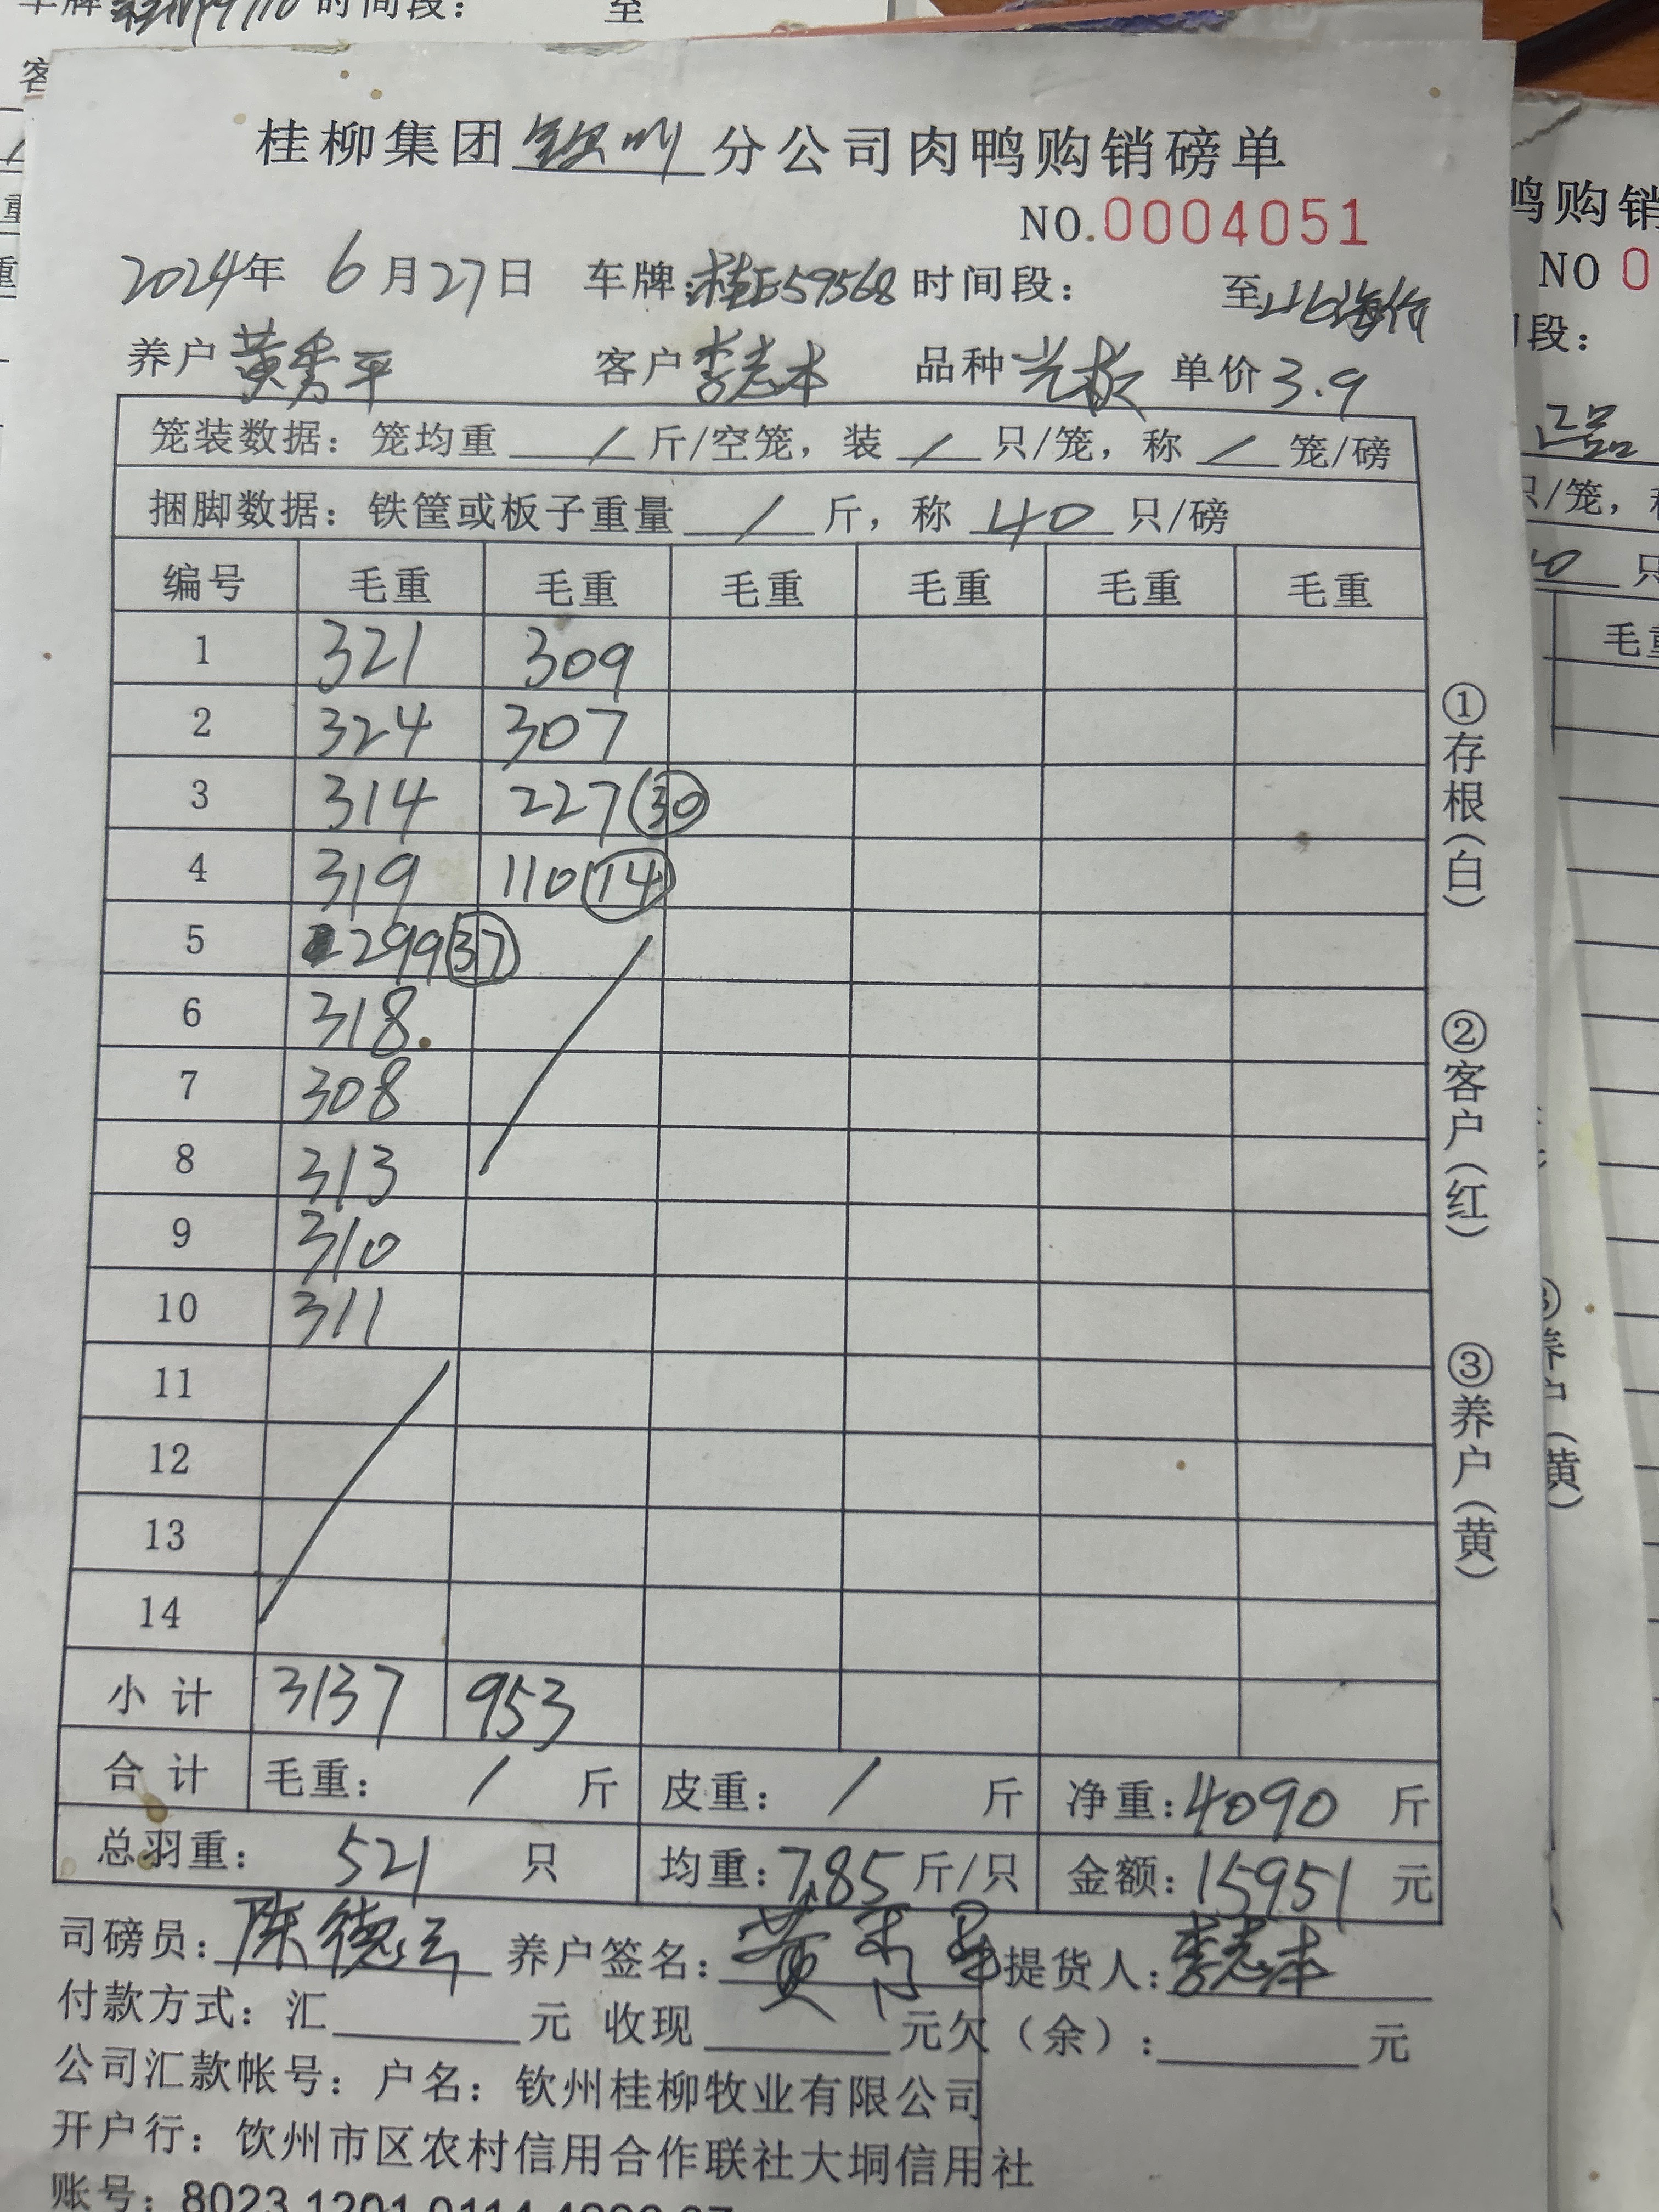 桂柳集团钦州分公司肉鸭购销磅单
NO.0004051
2024年 6月27日 车牌:桂E59568 时间段: 至
养户黄秀平 客户李志本 品种光板 单价3.9
笼装数据: 笼均重 / 斤/空笼, 装 / 只/笼, 称 / 笼/磅
捆脚数据: 铁筐或板子重量 / 斤, 称 40 只/磅
编号 毛重 毛重 毛重 毛重 毛重 毛重
1 321 309
2 324 307
3 314 227(30)
4 319 110(14)
5 299(37)
6 318
7 308
8 313
9 310
10 311
11
12
13
14
小计 3137 953
合计 毛重: / 斤 皮重: / 斤 净重:4090 斤
总羽重: 521 只 均重:7.85斤/只 金额:15951 元
司磅员:陈德云 养户签名:黄秀平 提货人:李志本
付款方式: 汇 元 收现 元欠(余): 元
公司汇款帐号: 户名: 钦州桂柳牧业有限公司
开户行: 钦州市区农村信用合作联社大垌信用社
账号: 8023 1201 0114
①存根(白)
②客户(红)
③养户(黄)
时间段:
至
鸭购销
NO 0
段:
正品
只/笼,
只
毛重